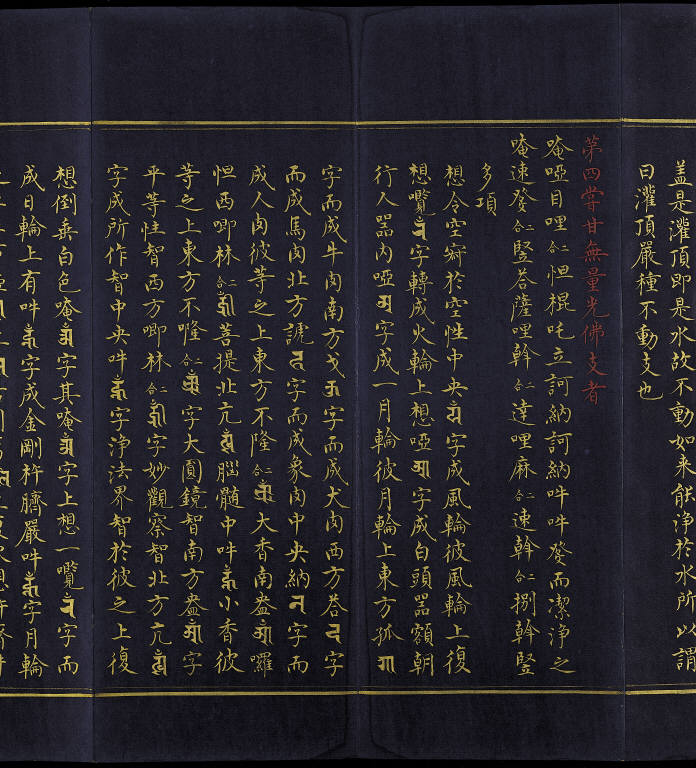 蓋是灌頂即是水故不動如来能浄於水所以謂
曰灌頂嚴種不動支也
第四甞甘無量光佛支者
唵啞目哩二合怛棍吒立訶納訶納吽吽發而潔浄之
唵速發二合竪荅薩哩斡二合達哩麻二合速斡二合捌斡竪
多項
想令空寂於空性中央字成風輪彼風輪上復
想囕字轉成火輪上想啞字成白頭器額朝
行人器内啞字成一月輪彼月輪上東方孤
字而成牛肉南方戈字而成犬肉西方荅字
而成馬肉北方謕字而成象肉中央納字而
成人肉彼等之上東方不隆二合大香南盎囉
怛西唧林二合菩提北亢腦髓中吽小香彼
等之上東方不隆二合字大圓鏡智南方盎字
平等性智西方唧林二合字妙觀察智北方亢
字成所作智中央吽字浄法界智於彼之上復
想倒垂白色唵字其唵字上想一囕字而
成日輪上有吽字成金剛杵臍嚴吽字月輪